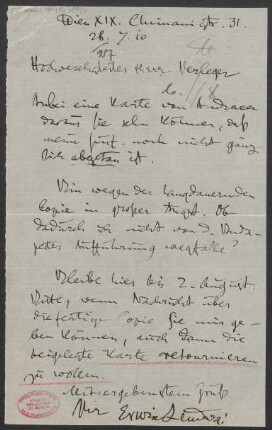 Wien XIX. Chimanistr. 31.
26. 7. 10
Hochverehrter Herr Verleger
Anbei eine Karte von Andreae
daraus Sie sehn können, daß
mein noch nicht ganz
abgetan ist.
Bin wegen der langdauernden
Copie in großer Angst. Ob
dadurch ich nicht von d. Buda-
pester Aufführung wegfalle?
Bleibe hier bis 2. August.
Bitte, wenn Nachricht über
die fertige Copie Sie mir ge-
ben können, auch dann die
beigelegte Karte retournieren
zu wollen.
Mit ergebenstem Gruß
Ihr Erwin Lendvai